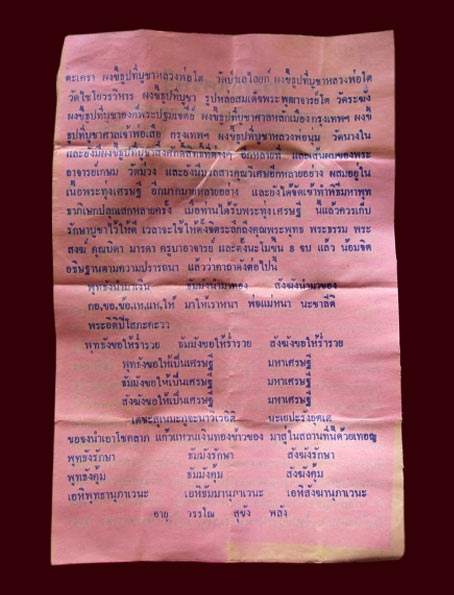 ตะเครา ผงขี้ธูปที่บูชาหลวงพ่อโต วัดป่าเลไลยก์ ผงขี้ธูปที่บูชาหลวงพ่อโต
วัดไชโยวรวิหาร ผงขี้ธูปที่บูชา รูปหล่อสมเด็จพระพุฒาจารย์โต วัดระฆัง
ผงขี้ธูปที่บูชาองค์พระปฐมเจดีย์ ผงขี้ธูปที่บูชาศาลหลักเมืองกรุงเทพฯ ผงขี้
ธูปที่บูชาศาลเจ้าพ่อเสือ กรุงเทพฯ ผงขี้ธูปที่บูชาหลวงพ่อนุ่ม วัดนางใน
และยังมีผงขี้ธูปที่บูชาสิ่งศักดิ์สิทธิ์ต่างๆ อีกหลายที่ และเส้นผมของพระ
อาจารย์เกษม วัดม่วง และยังมีมวลสารคุณวิเศษอีกหลายอย่าง ผสมอยู่ใน
เนื้อพระทุ่งเศรษฐี อีกมากมายหลายอย่าง และยังได้จัดเข้าทำพิธีมหาพุท
ธาภิเษกปลุกเสกหลายครั้ง เมื่อท่านได้รับพระทุ่งเศรษฐี นี้แล้วควรเก็บ
รักษาบูชาไว้ให้ดี เวลาจะใช้ให้ตั้งจิตระลึกถึงคุณพระพุทธ พระธรรม พระ
สงฆ์ คุณบิดา มารดา ครูบาอาจารย์ และตั้งนะโมขึ้น ๓ จบ แล้ว น้อมจิต
อธิษฐานตามความปรารถนา แล้วว่าคาถาดังต่อไปนี้
พุทธังนำมาเงิน ธัมมังนำมาทอง สังฆังนำมาของ
กอ,ขอ,ข้อ,เห,แห,ให้ มาให้เราหนา พ่อแม่หนา นะชาลีติ
พระอิติปิโสภะคะวา
พุทธังขอให้ร่ำรวย ธัมมังขอให้ร่ำรวย สังฆังขอให้ร่ำรวย
พุทธังขอให้เป็นเศรษฐี มหาเศรษฐี
ธัมมังขอให้เป็นเศรษฐี มหาเศรษฐี
สังฆังขอให้เป็นเศรษฐี มหาเศรษฐี
เตชะสุเนมะภูจะนาวิเวอิติ นะเยปะรังยุตเต
ขอจงนำเอาโชคลาภ แก้วแหวนเงินทองข้าวของ มาสู่ในสถานที่นี้ด้วยเทอญ
พุทธังรักษา ธัมมังรักษา สังฆังรักษา
พุทธังคุ้ม ธัมมังคุ้ม สังฆังคุ้ม
เอหิพุทธานุภาเวนะ เอหิธัมมานุภาเวนะ เอหิสังฆานุภาเวนะ
อายุ วรรโณ สุขัง พลัง